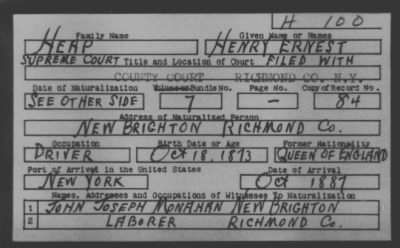 H 100
Family Name Given Name or Names
HEAP HENRY ERNEST
SUPREME COURT Title and Location of Court FILED WITH
COUNTY COURT RICHMOND CO. N.Y.
Date of Naturalization Volume or Bundle No. Page No. Copy of Record No.
SEE OTHER SIDE 7 - 84
Address of Naturalized Person
NEW BRIGHTON RICHMOND CO.
Occupation Birth Date or Age Former Nationality
DRIVER Oct 18. 1873 QUEEN OF ENGLAND
Port of Arrival in the United States Date of Arrival
NEW YORK Oct 1887
Names, Addresses and Occupations of Witnesses To Naturalization
1 JOHN JOSEPH MONAHAN NEW BRIGHTON
2 LABORER RICHMOND CO.